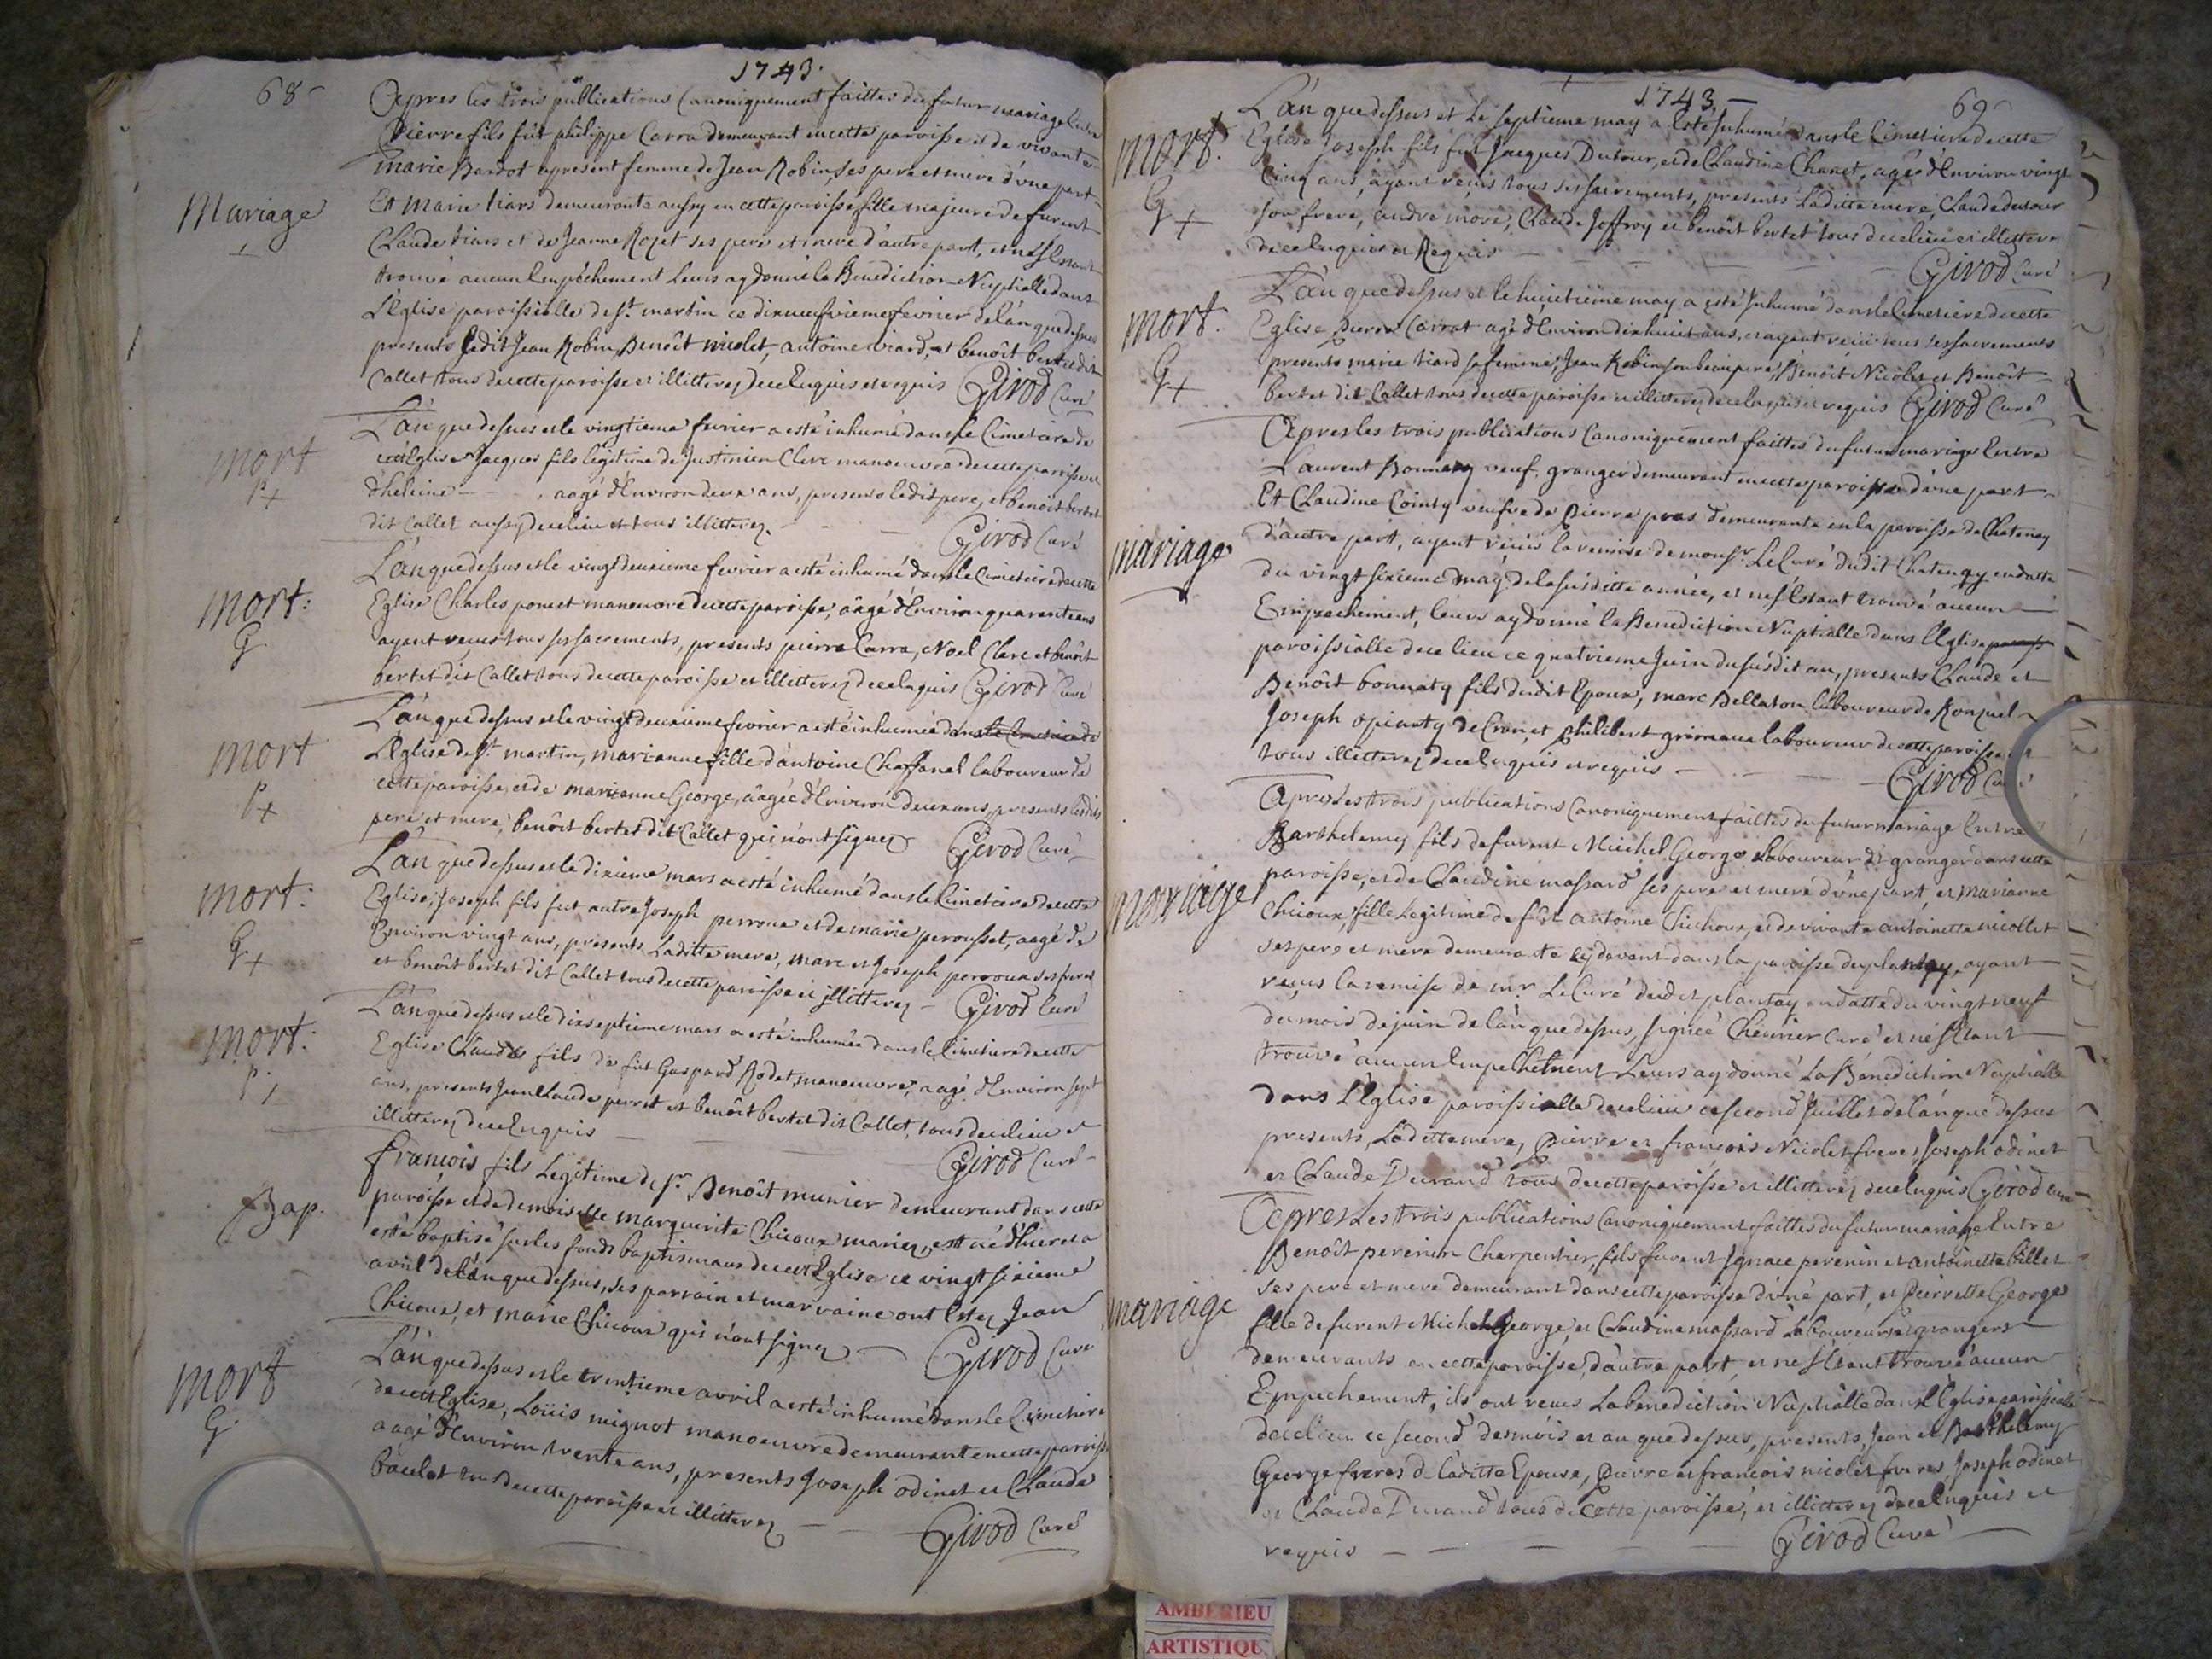 68
1743.
Apres les trois publications Canoniquement faittes du futur mariage Entre
Pierre fils fût philippe Carra demeurant en cette paroisse et de vivante
marie Bardot apresent femme de Jean Robin, ses pere et mere d'une part
Mariage
Et Marie tiars demeurante aussy en cette paroisse fille majeure de furent
Claude tiars et de Jeanne Rojet ses pere et mere d'autre part, et ne s'Estant
trouvé aucun Empêchement Leurs ay donné la Benediction Nuptialle dans
L'Eglise paroissialle de st. martin ce dix neufvieme fevrier de l'an que dessus
presents ledit Jean Robin, Benoît nicolet, antoine viard, et benoît bertet dit
Callet tous de cette paroisse et illitterez de ce Enquis et requis Girod Curé
mort
P+
L'an que dessus et le vingtieme fevrier a esté inhumé dans le Cimetiere de
cett Eglise Jacques fils légitime de Justinien Clerc manoeuvre de cette paroisse et
d'heleine — , aagé d'Environ deux ans, presents ledit pere, et benoît bertet
dit Callet aussy de ce lieu et tous illitterez — Girod Curé
mort:
G
L'an que dessus et le vingt deuxieme fevrier a esté inhumé dans le Cimetiere de cette
Eglise Charles poncet manoeuvre de cette paroisse, aâgé d'Environ quarente ans
ayant reçus tous ses sacrements, presents pierre Carra, Noel Clerc et benoît
bertet dit Callet tous de cette paroisse et illitterez de ce Enquis Girod Curé
mort
P+
L'an que dessus et le vingt deuxieme fevrier a esté inhumée dans le Cimetiere de
L'Eglise de st. martin, marianne fille d'antoine Chassanel laboureur de
cette paroisse, et de marianne George, âagée d'Environ deux ans, presents lesdits
pere et mere, benoît bertet dit Callet qui n'ont signez Girod Curé
mort:
G+
L'an que dessus et le dixieme mars a esté inhumé dans le Cimetiere de cette
Eglise, Joseph fils fut autre Joseph perroux et de marie perousset, aagé d'e
Environ vingt ans, presents Laditte mere, marc et Joseph perroux ses freres
et benoît bertet dit Callet tous de cette paroisse et illitterez — Girod Curé
mort:
P+
L'an que dessus et le dixseptieme mars a esté inhumée dans le Cimetiere de cette
Eglise Claude fils de fût Gaspard Rodet, manoeuvre, aagé d'Environ sept
ans, presents Jean Claude perret et benoît bertet dit Callet, tous de ce lieu et
illitterez de ce Enquis — Girod Curé
Bap.
françois fils Legitime de sr. Benoît munier demeurant dans cette
paroisse et de demoiselle marguerite Chicoux mariez, est né d'hier et a
esté baptisé sur les fonds baptismaux de cett Eglise ce vingt sixieme
avril de l'an que dessus, ses parrain et marraine ont Estez Jean
Chicoux, et marie Chicoux qui n'ont signez — Girod Curé
mort
G
L'an que dessus et le trentieme avril a esté inhumé dans le Cimetiere
de cett Eglise, Loüis mignot manoeuvre demeurant en cette paroisse
aagé d'Environ trente ans, presents Joseph odinet et Claude
baulet tous de cette paroisse et illitterez — Girod Curé
1743. —
69
mort.
G+
L'an que dessus et Le septieme may a Esté Inhumé dans le Cimetiere de cette
Eglise Joseph fils fut Jacques Dutour, et de Claudine Chanet, agé d'Environ vingt
Cinq ans, ayant reçus tous ses sacrements, presents Laditte mere, Claude dutour
son frere, andre moré, Claude Joffroy et benoît bertet tous de ce lieu et illitterez
de ce Enquis et Requis — Girod Curé
mort.
G+
L'an que dessus et le huictieme may a esté Inhumé dans le Cimetiere de cette
Eglise Pierre Carrat agé d'Environ dix huict ans, et ayant reçu tous ses sacrements
presents marie tiard sa femme, Jean Robin son beau pere, Benoît Nicolet et Benoît
bertet dit Callet tous de cette paroisse et illitterez de ce Enquis et requis Girod Curé
Apres les trois publications Canoniquement faittes du futur mariage Entre
Laurent Bonnaty veuf. granger demeurant en cette paroisse d'une part
Et Claudine Cointy veufve de Pierre pras demeurante en la paroisse de Chatenay
mariage
d'autre part, ayant reçus la remise de monsr. Le Curé dudit Chatenay en datte
du vingt sixieme may de la susditte année, et ne s'Estant trouvé aucun
Empechement, leurs ay donné la Benediction Nuptialle dans L'Eglise
paroissialle de ce lieu ce quatrieme Juin du susdit an, presents Claude et
Benoît bonnaty fils dudit Epoux, marc Bellaton laboureur de Ronzuel
Joseph opianty de Cran, et Philibert grimaux laboureur de cette paroisse et
tous illitterez de ce Enquis et requis — Girod Curé
mariage
Apres Les trois publications Canoniquement faittes du futur mariage Entre
Barthelemy fils de furent Michel George Laboureur et granger dans cette
paroisse, et de Claudine massard ses pere et mere d'une part, et marianne
Chicoux, fille Legitime de fût antoine Chichoux, et de vivante antoinette nicollet
ses pere et mere demeurante cy devant dans la paroisse du plantay, ayant
reçus la remise de mr. Le Curé dudit plantay en datte du vingt neuf
du mois de juin de l'an que dessus, signée Cheurier Curé et ne s'Estant
trouvé aucun Empechement Leurs ay donné La Bénediction Nuptialle
dans L'Eglise paroissialle de ce lieu ce second Juillet de l'an que dessus
presents, Laditte mere, Pierre et françois Nicolet freres, Joseph odinet
et Claude Durand tous de cette paroisse et illitterez de ce Enquis Girod Curé
mariage
Apres Les trois publications Canoniquement faittes du futur mariage Entre
Benoît perenin Charpentier, fils furent Ignace perenin et antoinette billet
ses pere et mere demeurant dans cette paroisse d'une part, et Pierrette George
fille de furent Michel George, et Claudine massard Laboureurs et grangers
demeurants en cette paroisse, d'autre part, et ne s'Etant trouvé aucun
Empechement, ils ont reçus La benediction Nuptialle dans L'Eglise paroissialle
de ce lieu ce second des mois et an que dessus, presents, Jean et Barthelemy
George freres d laditte Epouse, Pierre et francois nicolet freres, Joseph odinet
et Claude Durand tous de Cette paroisse, et illitterez de ce Enquis et
requis — Girod Curé
AMBERIEU
ARTISTIQU